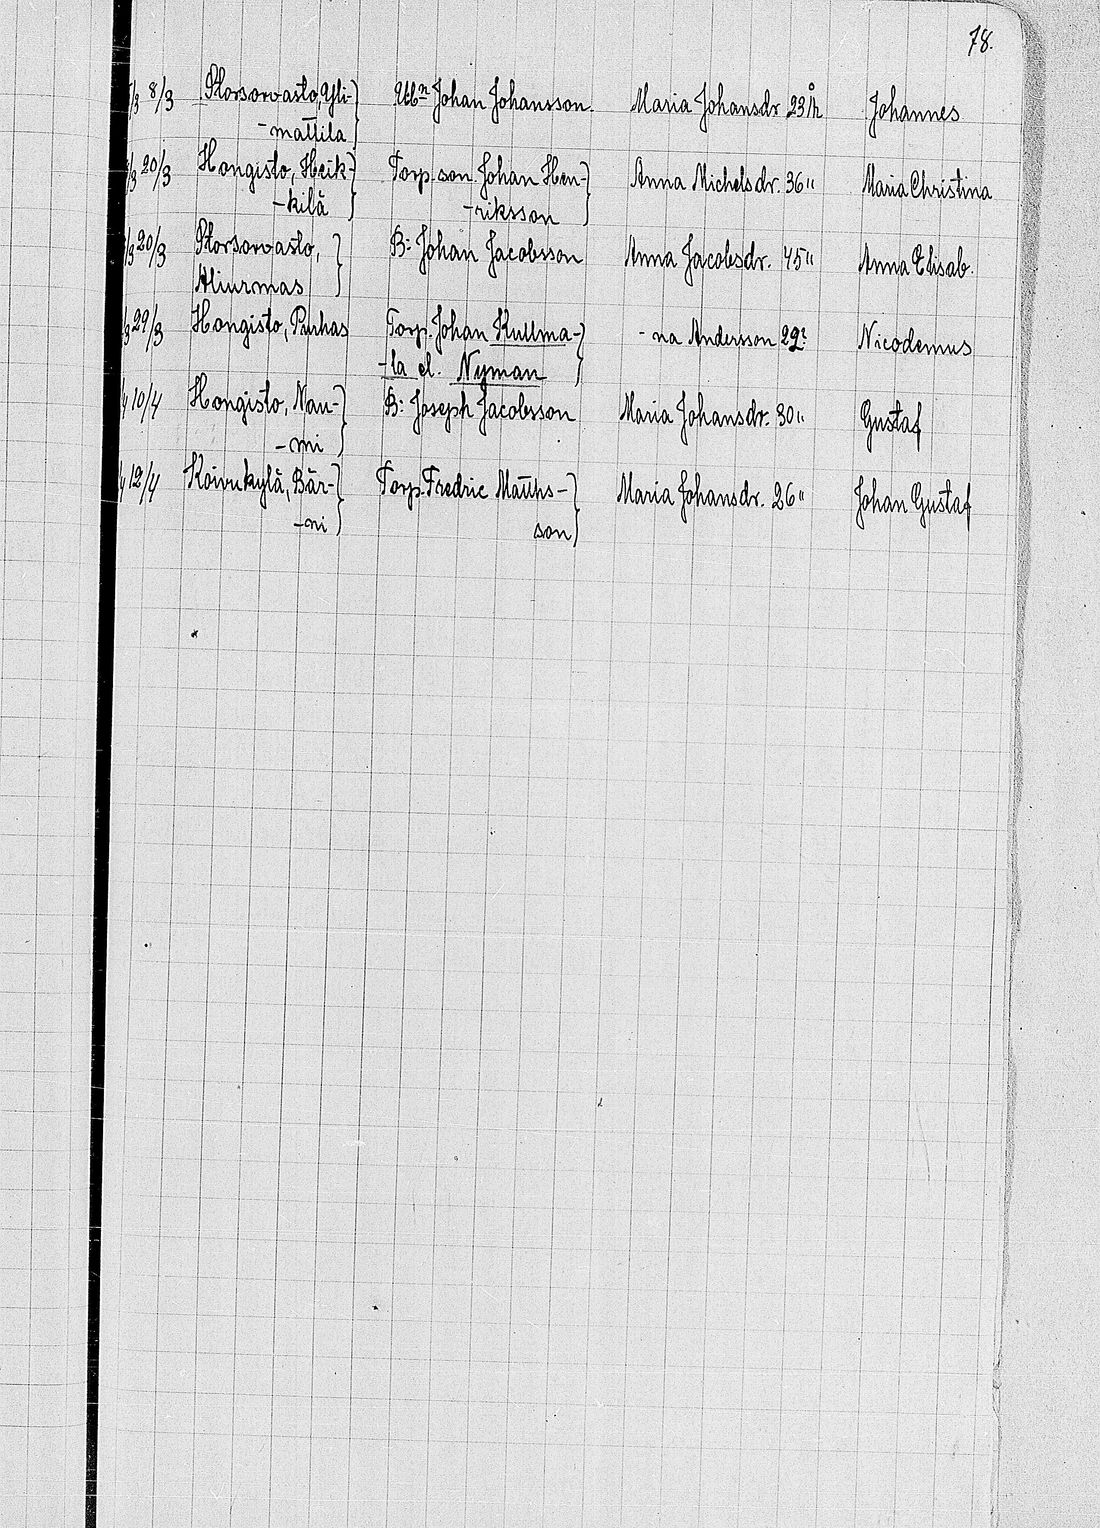 78.
/3 8/3 Storsorvasto, Yli- Ubn Johan Johansson. Maria Johansdr 23 år Johannes
-mattila
/3 20/3 Hongisto, Heik- Torp. son Johan Hen- Anna Michelsdr. 36 " Maria Christina
-kilä -riksson
/3 20/3 Storsorvasto, B: Johan Jacobsson Anna Jacobsdr. 45 " Anna Elisab.
Aliurmas
/3 29/3 Hongisto, Purhas Torp. Johan Kullma- - na Andersson 29? Nicodemus
-la el. Nyman
/4 10/4 Hongisto, Nau- B: Joseph Jacobsson Maria Johansdr. 30 " Gustaf
-mi
/4 12/4 Koivukylä, Bär- Torp. Fredric Matths- Maria Johansdr. 26 " Johan Gustaf
-ni son